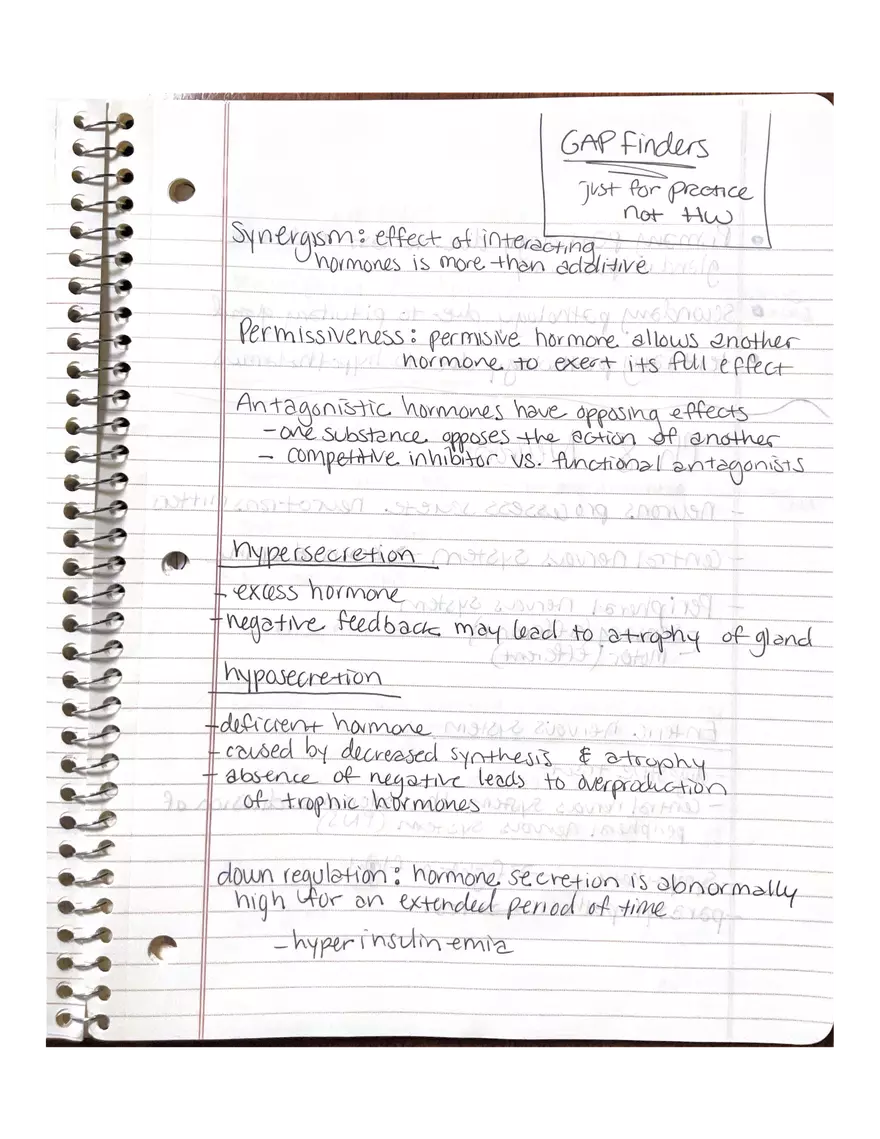 GAP Finders
just for practice
not HW
Synergism: effect of interacting
hormones is more than additive
Permissiveness: permisive hormone allows another
hormone to exert its full effect
Antagonistic hormones have opposing effects
- one substance opposes the action of another
- competitive inhibitor vs. functional antagonists
hypersecretion
- excess hormone
- negative feedback may lead to atrophy of gland
hyposecretion
- deficient hormone
- caused by decreased synthesis & atrophy
- absence of negative leads to overproduction
of trophic hormones
down regulation: hormone secretion is abnormally
high for an extended period of time
- hyperinsulinemia